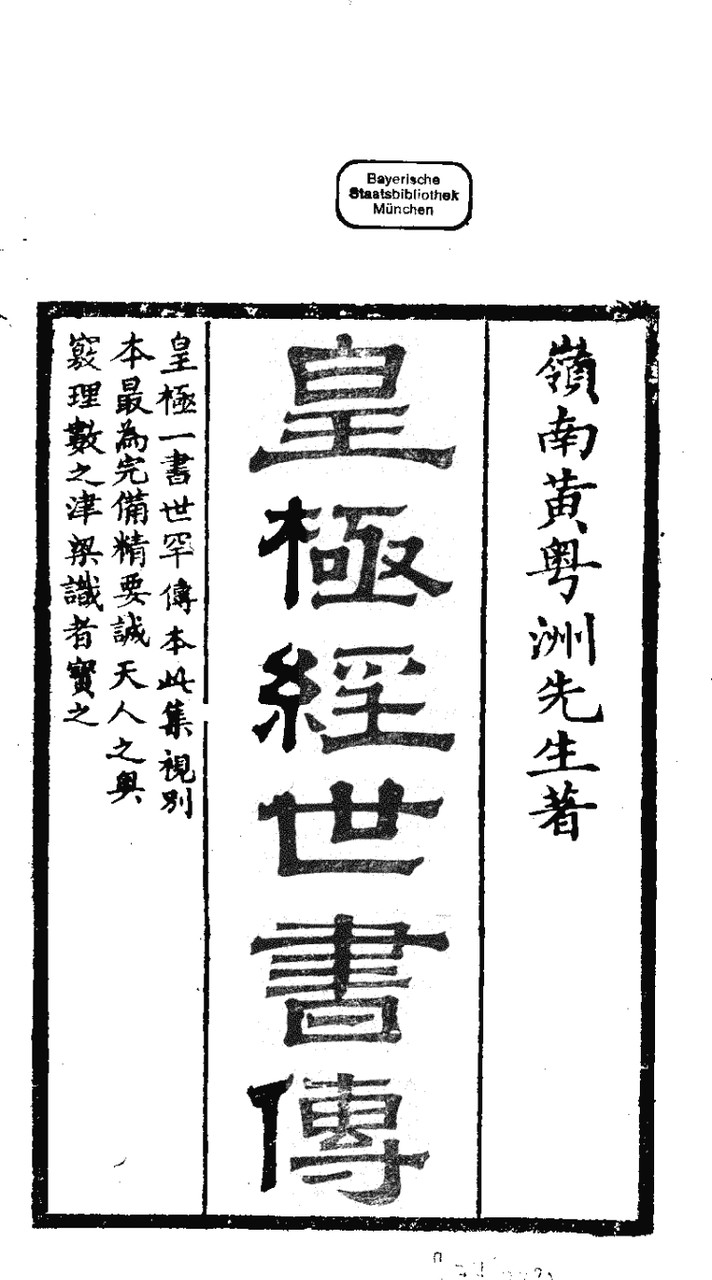 Bayerische
Staatsbibliothek
München
嶺南黃粵洲先生著
皇極經世書傳
皇極一書世罕傳本此集視別
本最為完備精要誠天人之奧
竅理數之津梁識者寶之